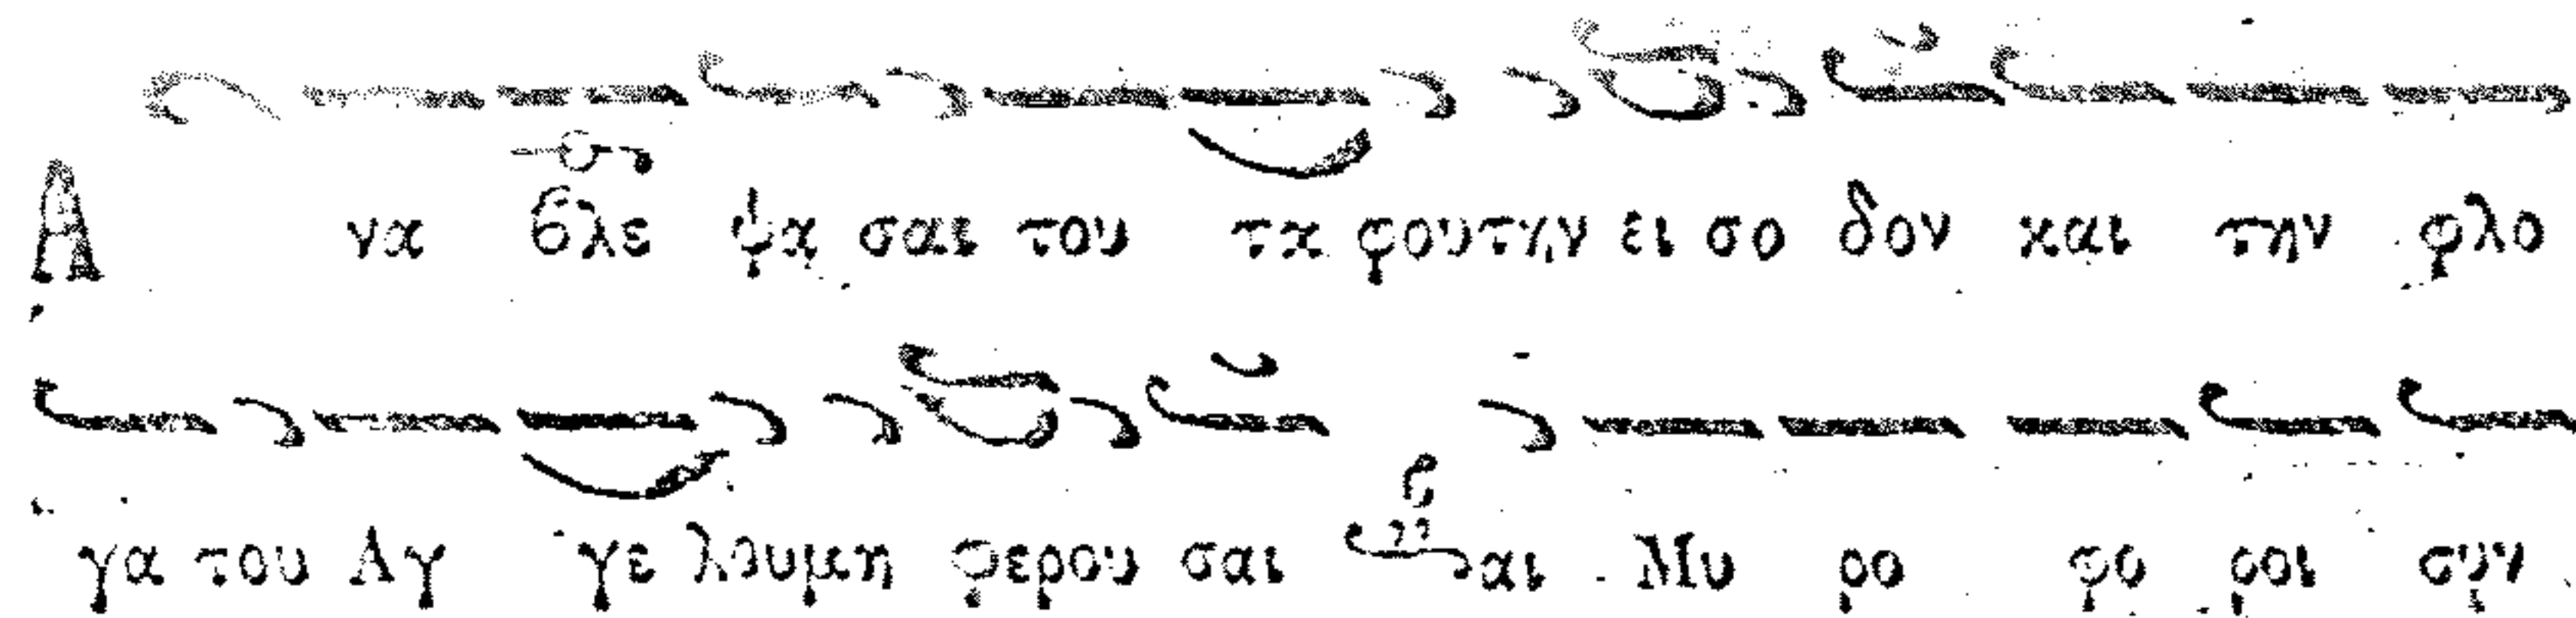 Α να βλε ψα σαι του τα φου την ει σο δον και την φλο
γα του Αγ γε λου μη φερου σαι αι Μυ ρο φο ροι συν